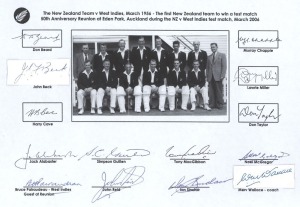 The New Zealand Team v West Indies, March 1956 - The first New Zealand team to win a test match
50th Anniversary Reunion at Eden Park, Auckland during the NZ v West Indies test match, March 2006
Don Beard
Murray Chapple
John Beck
Lawrie Miller
Harry Cave
Don Taylor
Jack Alabaster
Simpson Guillen
Tony MacGibbon
Noel McGregor
Bruce Pairaudeau - West Indies
Guest of Reunion
John Reid
Ian Sinclair
Merv Wallace - coach